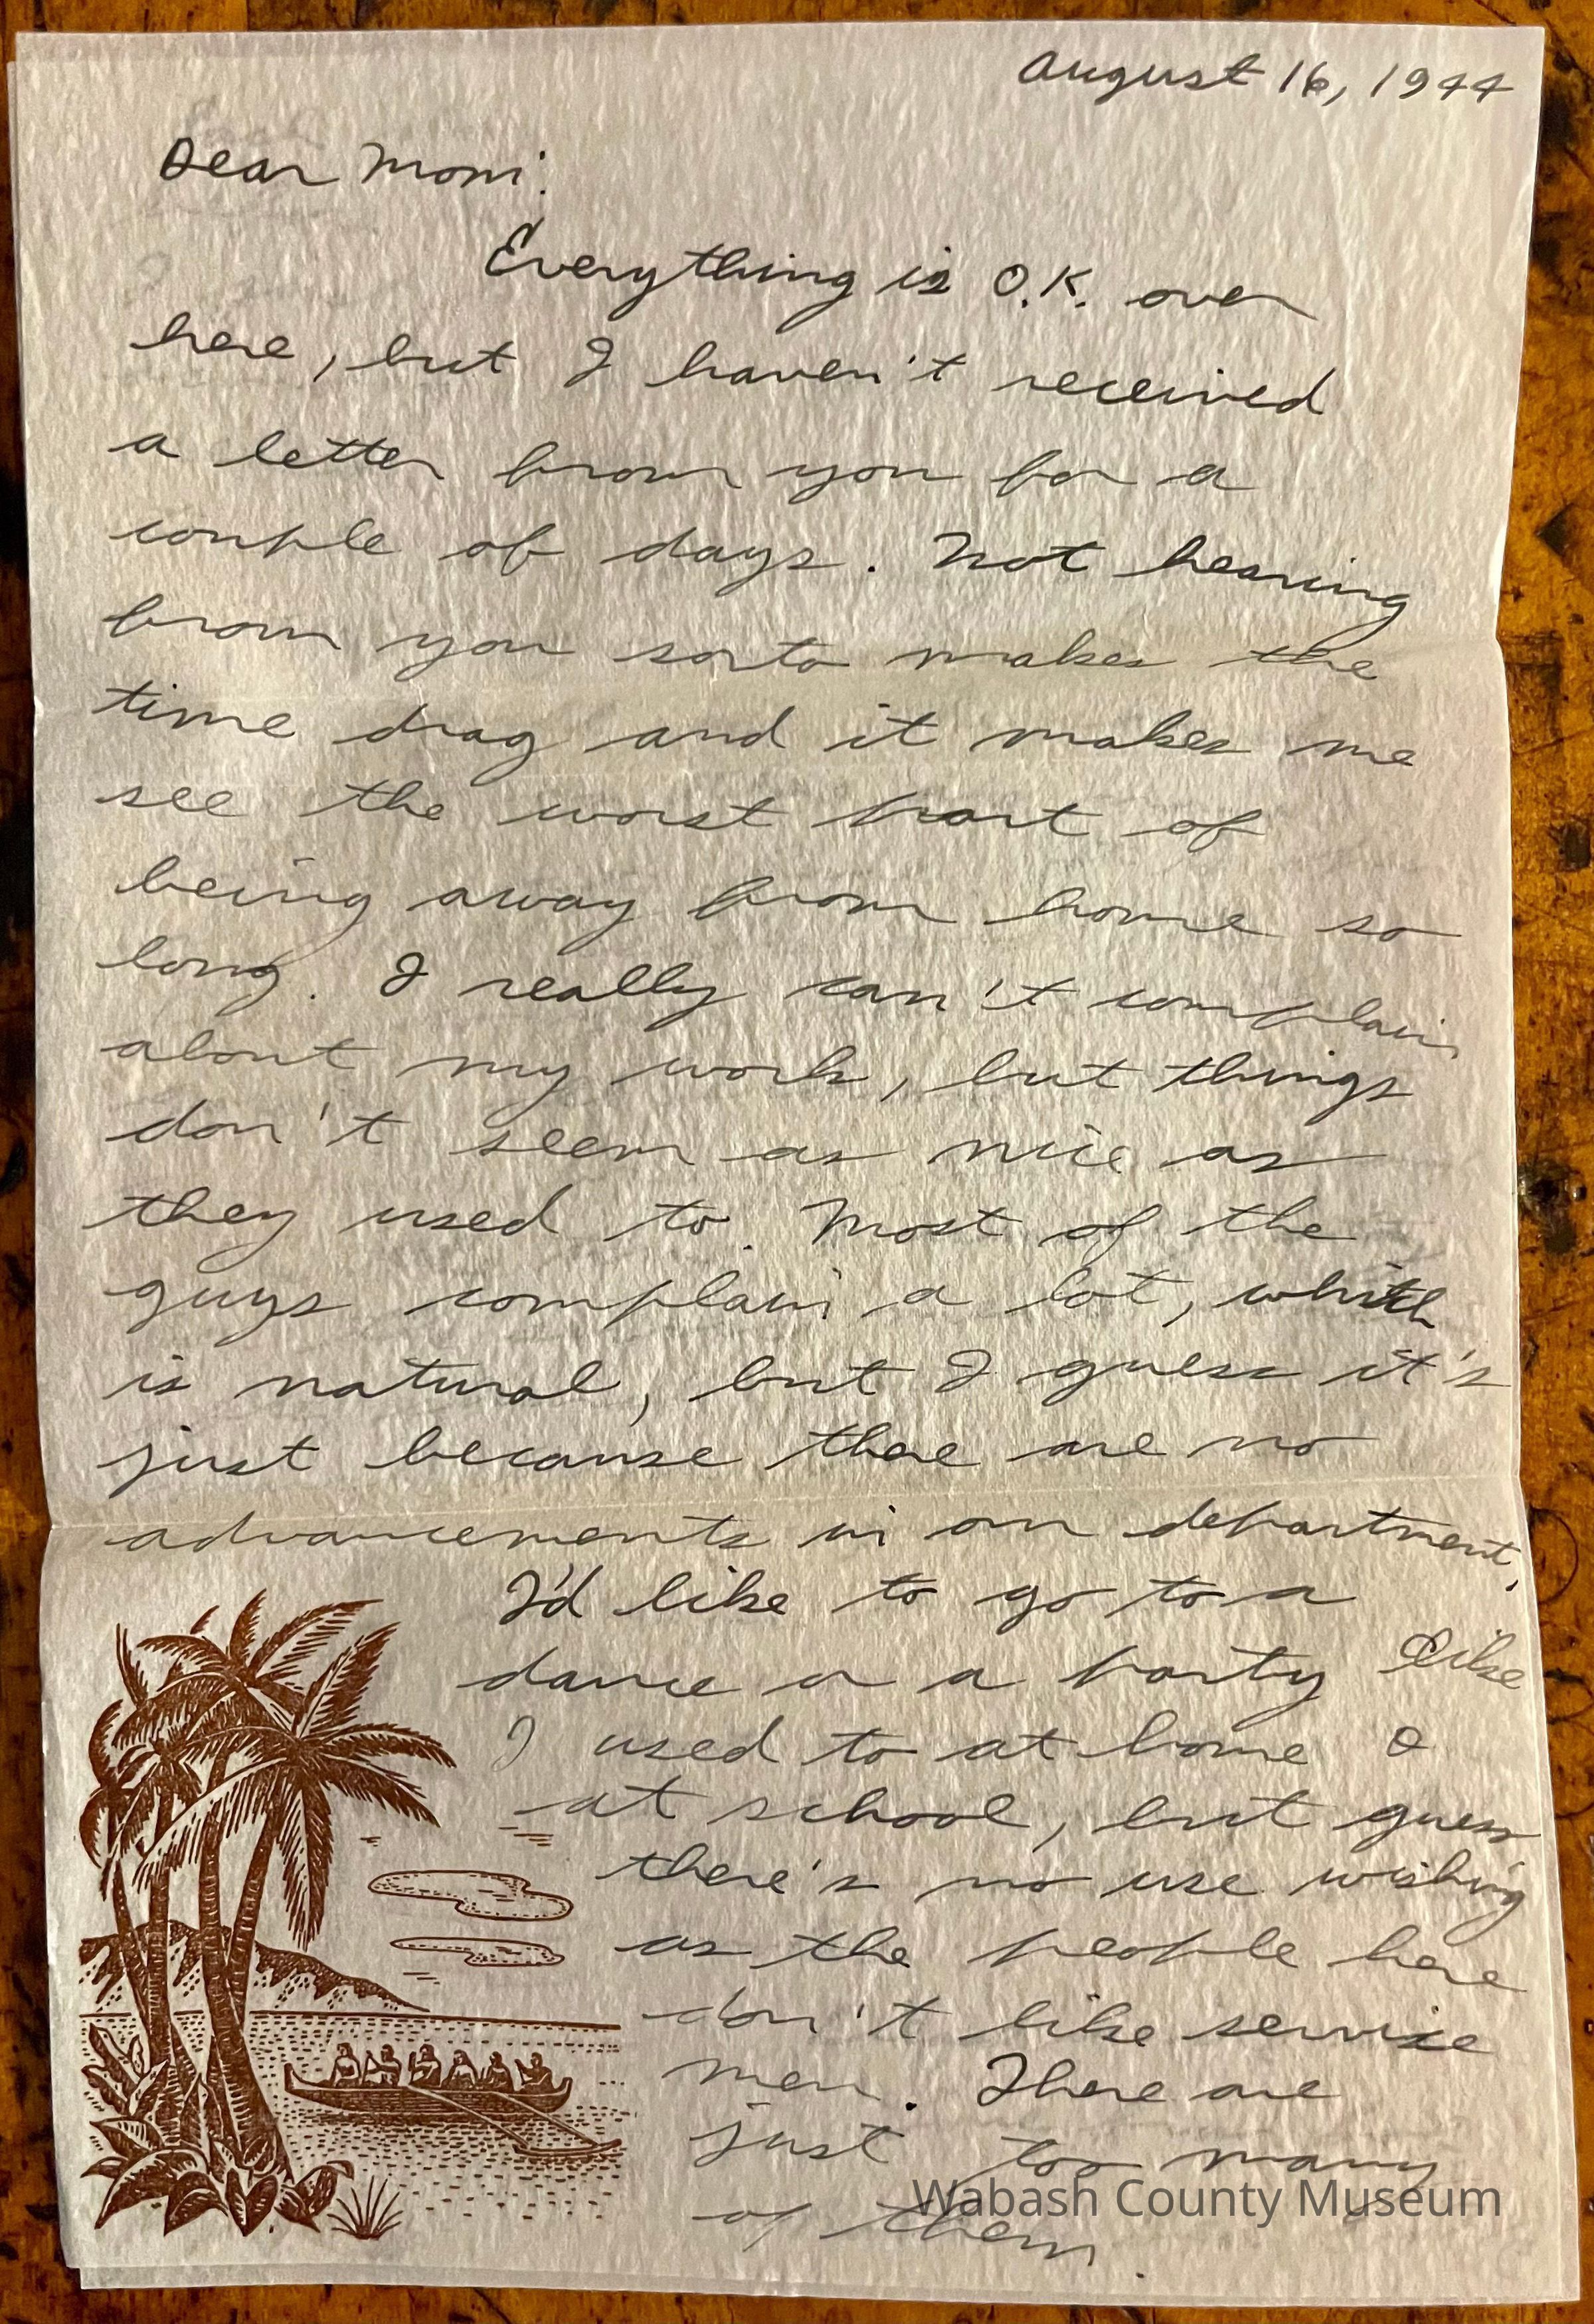 August 16, 1944
Dear Mom:
Everything is O.K. over
here, but I haven't received
a letter from you for a
couple of days. Not hearing
from you sorta makes the
time drag and it makes me
see the worst part of
being away from home so
long. I really can't complain
about my work, but things
don't seem as nice as
they used to. Most of the
guys complain a lot, which
is natural, but I guess it's
just because there are no
advancements in our department.
I'd like to go to a
dance or a party like
I used to at home &
at school, but guess
there's no use wishing
as the people here
don't like service
men. There are
just too many
of them.
Wabash County Museum